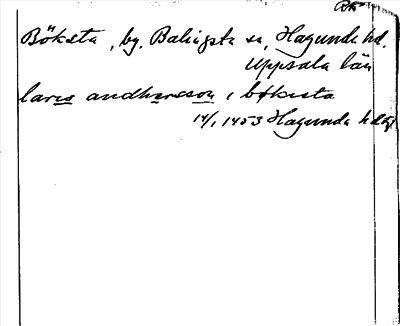 Böksta, by, Balingsta sn, Hagunda hd.
Uppsala län
lares andhersson i bøksta
14/1 1453 Hagunda hdtg